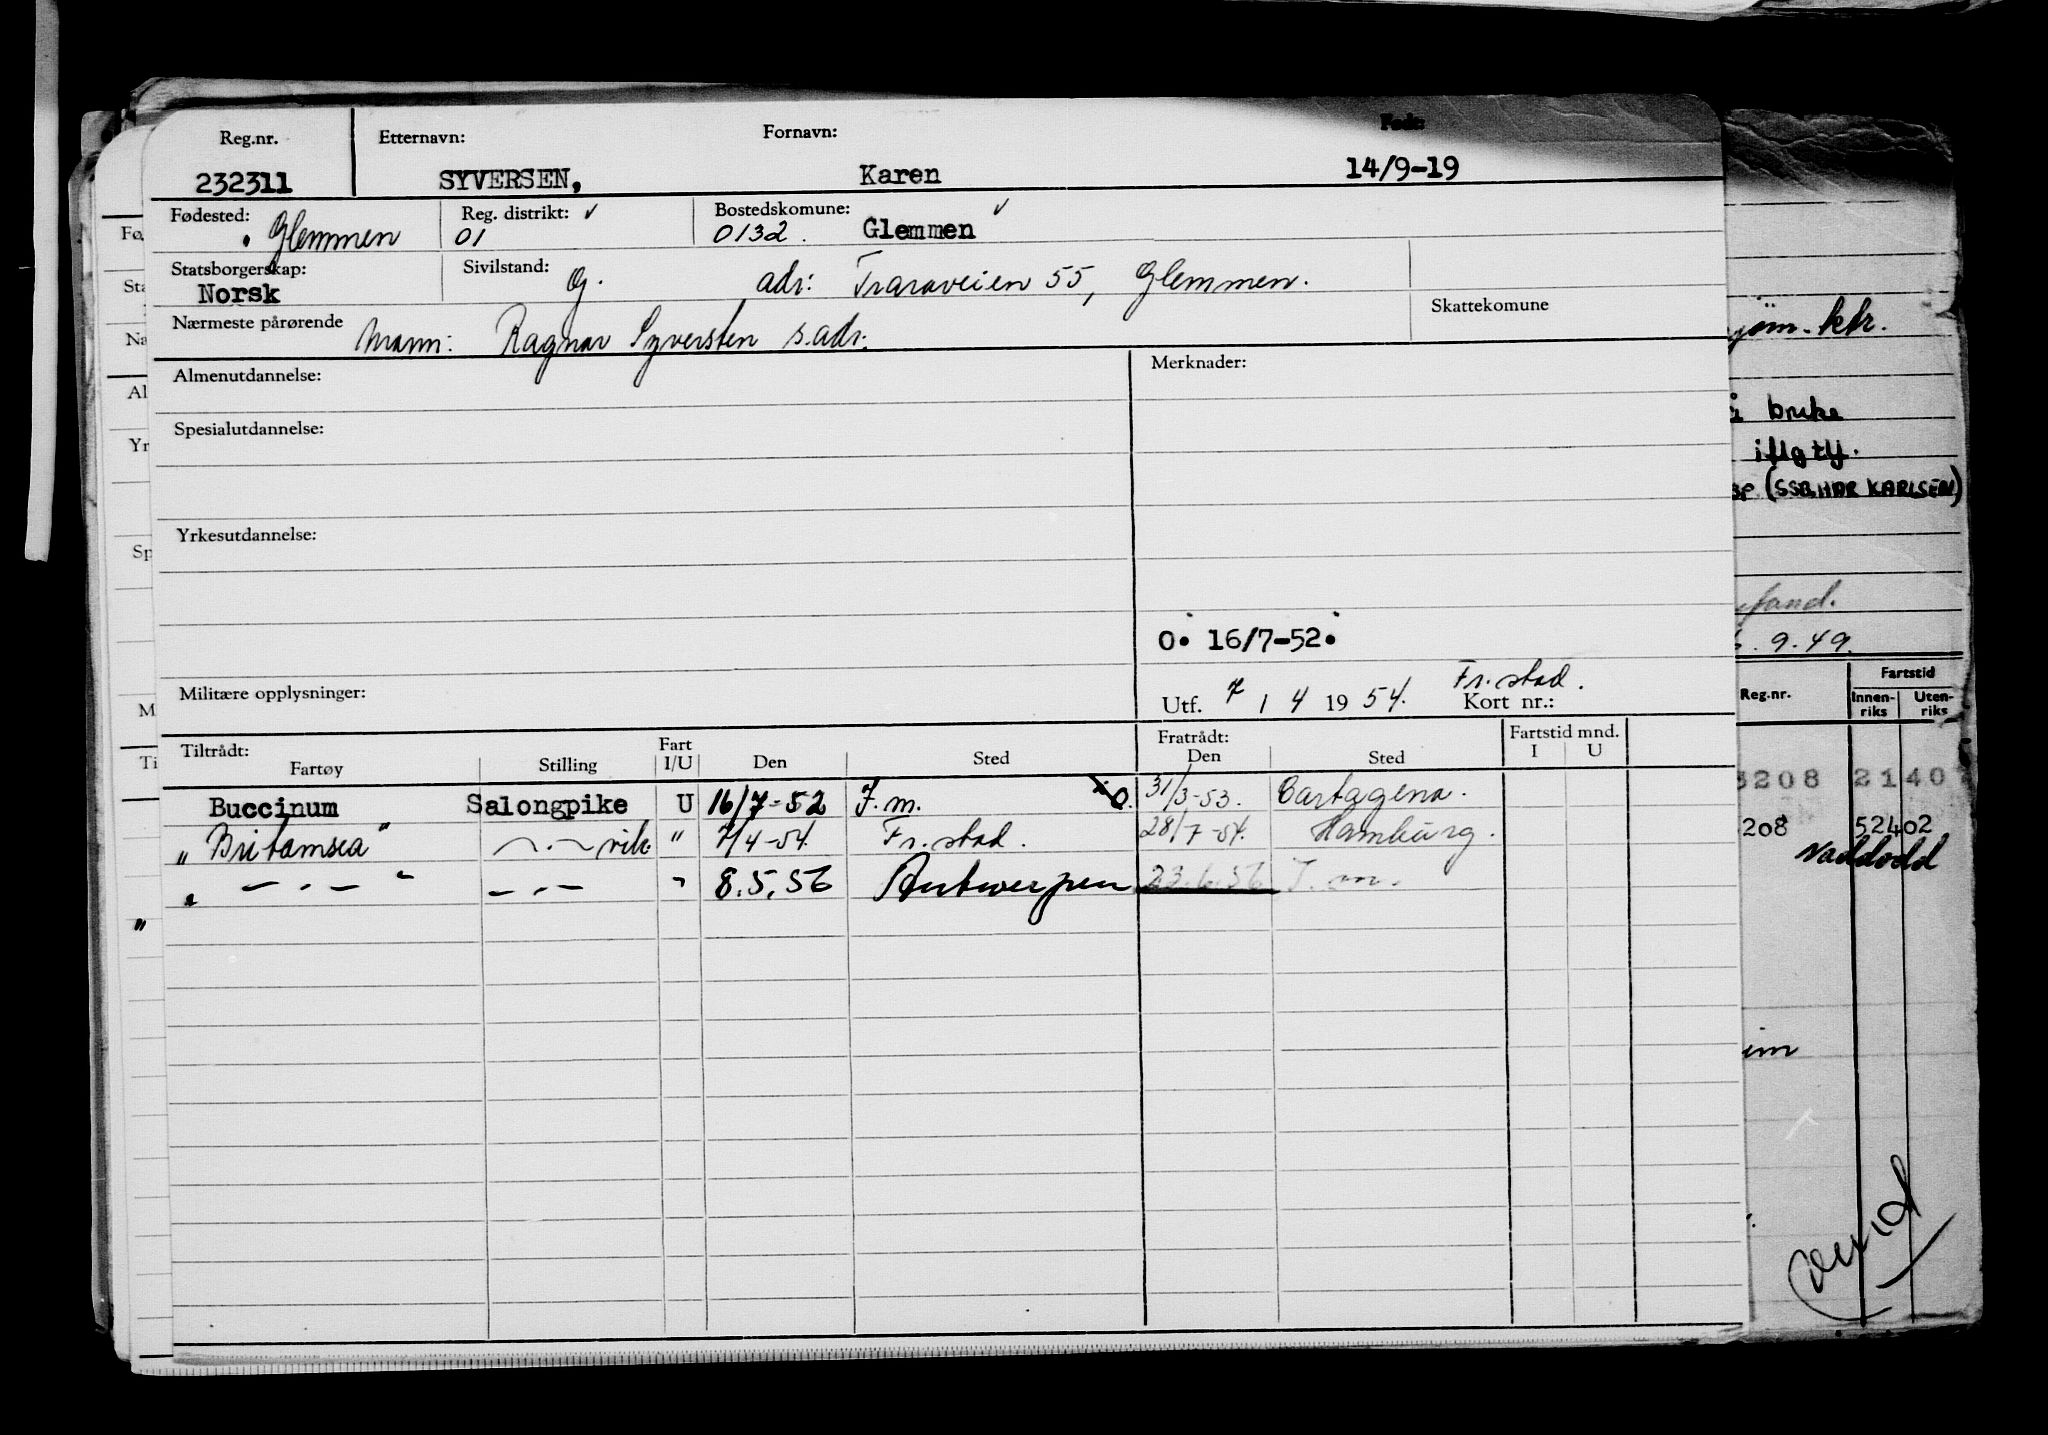 Reg.nr. Etternavn: Fornavn: Født:
232311 SYVERSEN, Karen 14/9-19
Fødested: Glemmen Reg. distrikt: ✓ 01 Bostedskomune: ✓ 0132. Glemmen
Statsborgerskap: Norsk Sivilstand: G. adr: Traraveien 55, Glemmen.
Nærmeste pårørende Mann: Ragnar Syversten s.adr. Skattekomune
Almenutdannelse: Merknader:
Spesialutdannelse:
Yrkesutdannelse:
O. 16/7-52.
Militære opplysninger: Utf. 7 / 4 1954. Fr.stad. Kort nr.:
Tiltrådt: Fratrådt: Fartstid mnd.
Fartøy Stilling Fart I/U Den Sted Den Sted I U
Buccinum Salongpike U 16/7-52 F.m. O. 31/3-53. Cartagena.
"Britamsea" —.— vik " 7/4-54. Fr.stad. 28/7-54. Hamburg.
" —.— " —.— " 8.5.56 Antwerpen 23.6.56 F.m.
Fø.
Sta
Na
Al
Yr
Sp
M
Ti
"
jøm. ktr.
å bruke
iflg tlf.
(SSB.HDR KARLSEN)
fand.
. 9.49.
Reg.nr. Fartstid
Innen-riks Uten-riks
3208 2140
208 52402
im